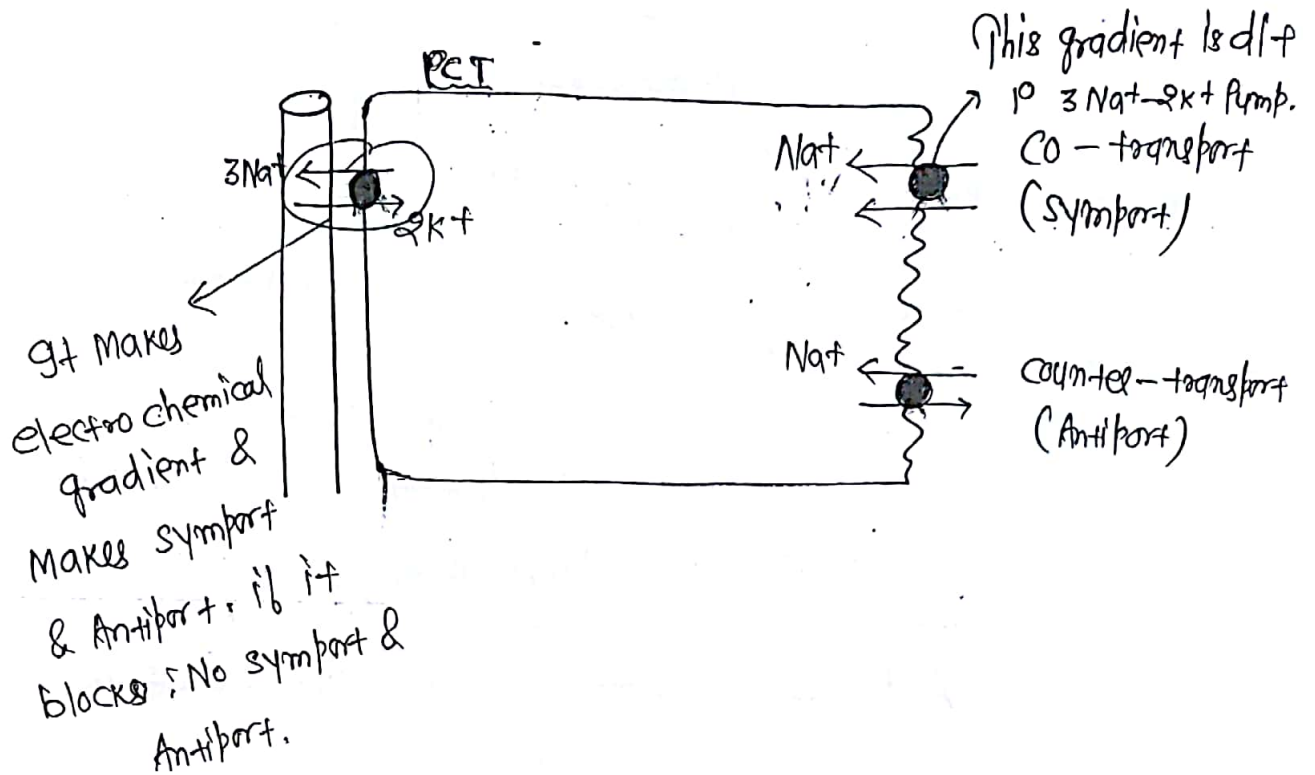 PCT
This gradient Is d/t
1° 3 Na+-2K+ Pump.
CO-transport
(Symport)
Na+
3Na+
2K+
Na+
Counter-transport
(Antiport)
It Makes
electrochemical
gradient &
Makes symport
& Antiport. if it
blocks : No symport &
Antiport.